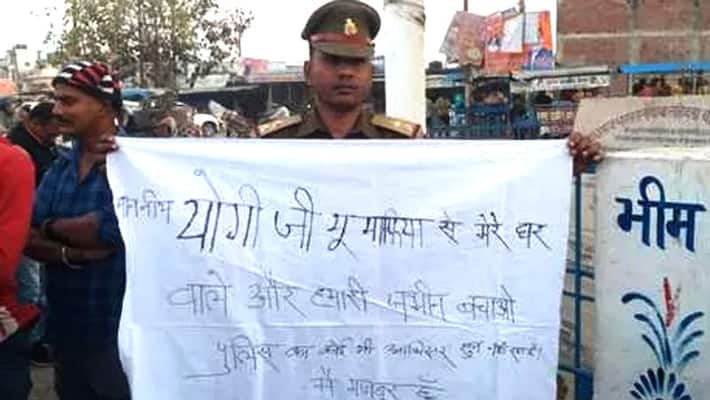 माननीय योगी जी भू माफिया से मेरे घर
वाले और हमारी जमीन बचाओ
पुलिस का कोई भी अधिकारी सुन नही रहा है।
मै मजबूर हूँ
भीम